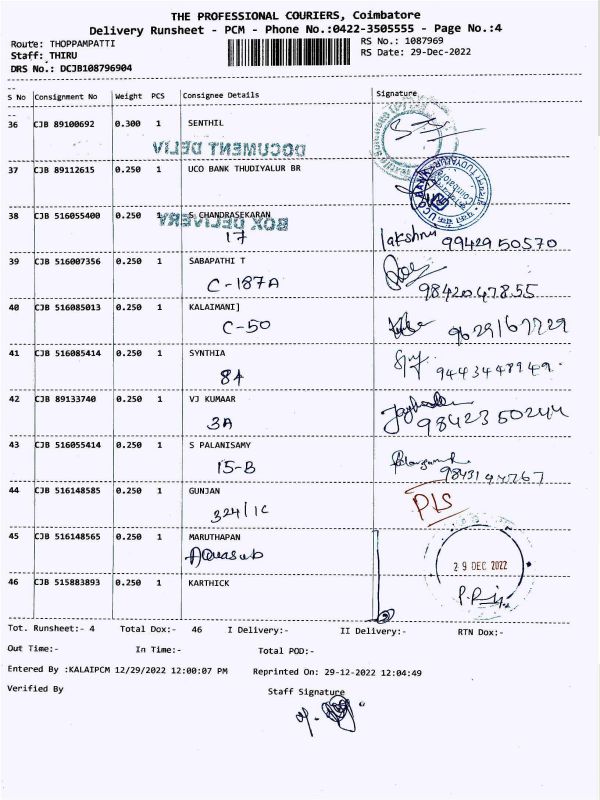 THE PROFESSIONAL COURIERS, Coimbatore
Delivery Runsheet - PCM - Phone No.:0422-3505555 - Page No.:4
Route: THOPPAMPATTI RS No.: 1087969
Staff: THIRU RS Date: 29-Dec-2022
DRS No.: DCJB108796904
S No Consignment No Weight PCS Consignee Details Signature
36 CJB 89100692 0.300 1 SENTHIL
DOCUMENT DELIV
37 CJB 89112615 0.250 1 UCO BANK THUDIYALUR BR
38 CJB 516055400 0.250 1 S CHANDRASEKARAN
BOX DELIVERY
17 lakshmi 9942950570
39 CJB 516007356 0.250 1 SABAPATHI T
C-187A 9842047855
40 CJB 516085013 0.250 1 KALAIMANI]
C-50
41 CJB 516085414 0.250 1 SYNTHIA
8A
42 CJB 89133740 0.250 1 VJ KUMAAR
3A
43 CJB 516055414 0.250 1 S PALANISAMY
15-B
44 CJB 516148585 0.250 1 GUNJAN
324/1C
45 CJB 516148565 0.250 1 MARUTHAPAN
Aquasub 29 DEC 2022
46 CJB 515883893 0.250 1 KARTHICK
Tot. Runsheet:- 4 Total Dox:- 46 I Delivery:- II Delivery:- RTN Dox:-
Out Time:- In Time:- Total POD:-
Entered By :KALAIPCM 12/29/2022 12:00:07 PM Reprinted On: 29-12-2022 12:04:49
Verified By Staff Signature